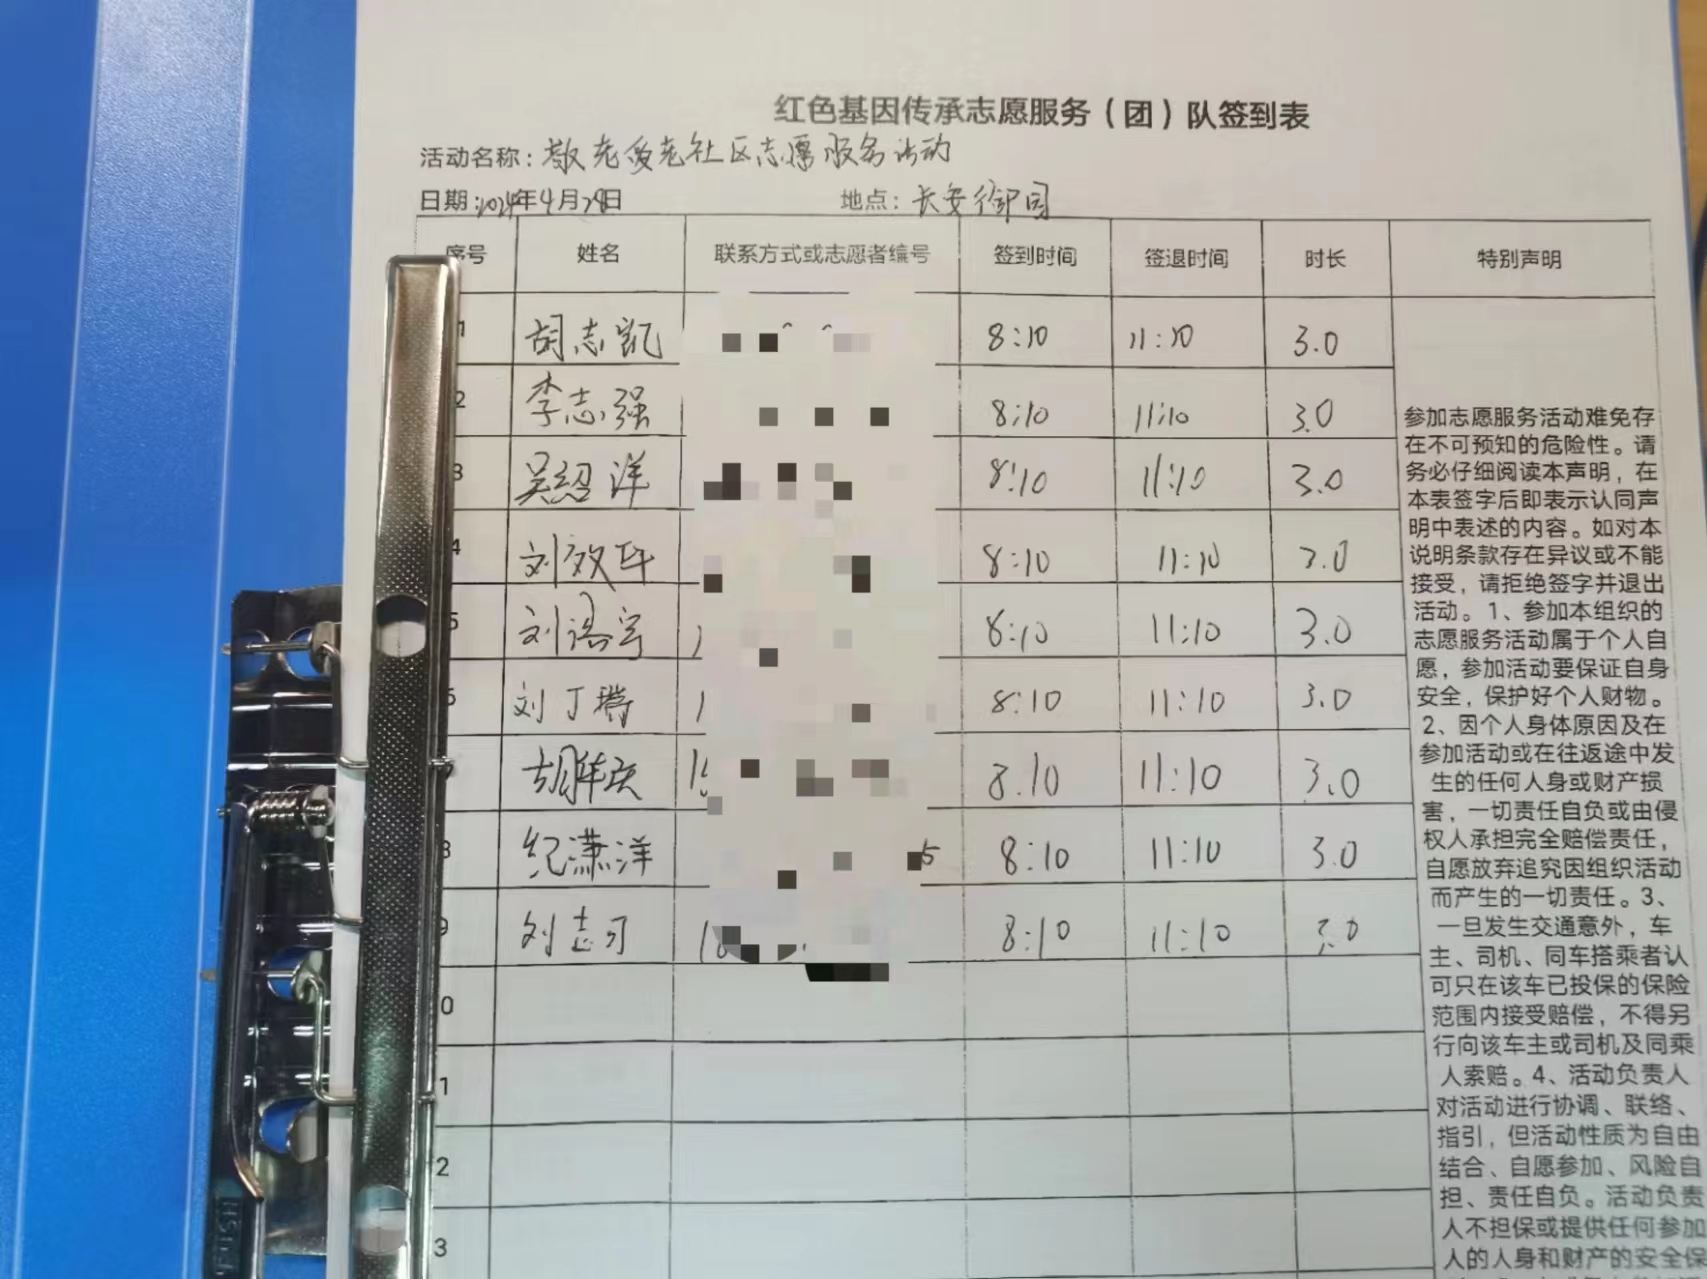 红色基因传承志愿服务（团）队签到表
活动名称：敬老爱老社区志愿服务活动
日期：2024年4月28日 地点：长安御园
序号 姓名 联系方式或志愿者编号 签到时间 签退时间 时长 特别声明
1 胡志凯 8:10 11:10 3.0
2 李志强 8:10 11:10 3.0
3 吴绍洋 8:10 11:10 3.0
4 刘效 8:10 11:10 3.0
5 刘 宇 8:10 11:10 3.0
6 刘丁瑞 8:10 11:10 3.0
7 胡 8.10 11:10 3.0
8 纪潇洋 5 8:10 11:10 3.0
9 刘志 8:10 11:10 3.0
0
1
2
3
参加志愿服务活动难免存
在不可预知的危险性。请
务必仔细阅读本声明，在
本表签字后即表示认同声
明中表述的内容。如对本
说明条款存在异议或不能
接受，请拒绝签字并退出
活动。1、参加本组织的
志愿服务活动属于个人自
愿，参加活动要保证自身
安全，保护好个人财物。
2、因个人身体原因及在
参加活动或在往返途中发
生的任何人身或财产损
害，一切责任自负或由侵
权人承担完全赔偿责任，
自愿放弃追究因组织活动
而产生的一切责任。3、
一旦发生交通意外，车
主、司机、同车搭乘者认
可只在该车已投保的保险
范围内接受赔偿，不得另
行向该车主或司机及同乘
人索赔。4、活动负责人
对活动进行协调、联络、
指引，但活动性质为自由
结合、自愿参加、风险自
担、责任自负。活动负责
人不担保或提供任何参加
人的人身和财产的安全保
PUSH